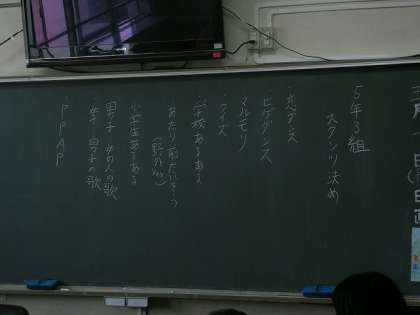 5年3組
スタンツ決め
・恋ダンス
・ヒゲダンス
・マルモリ
・クイズ
・学校あるある
・あたり前たいそう
(野外ver)
・小学生あるある
・男子 女の人の歌
女子 男子の歌
・PPAP